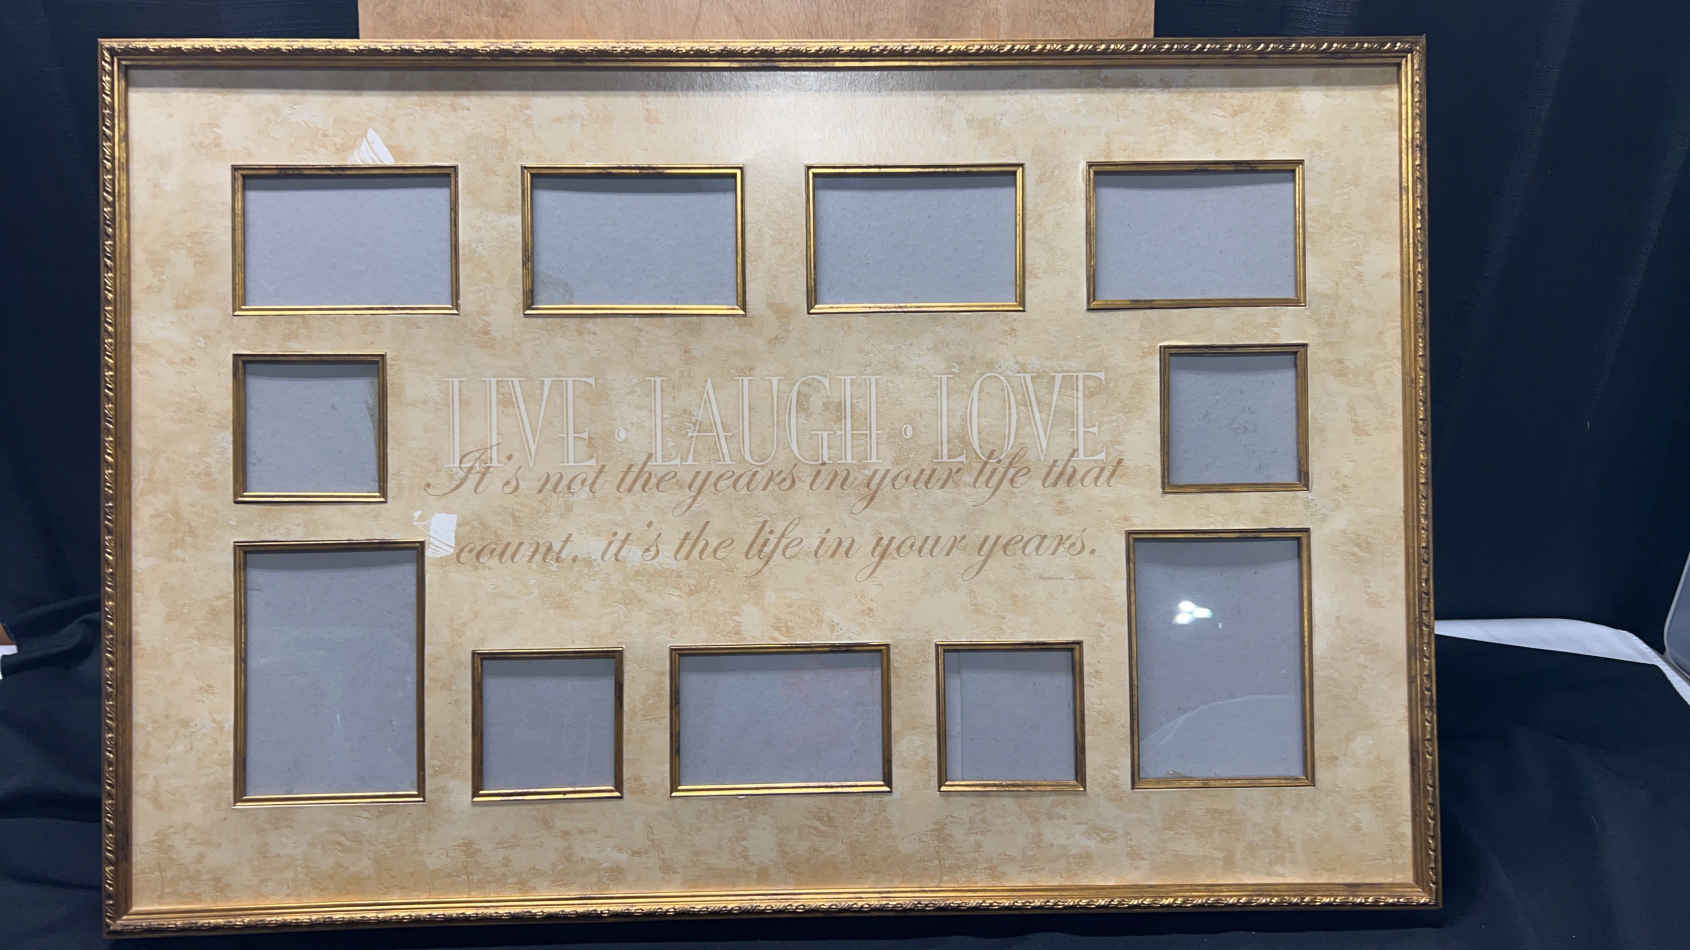 LIVE · LAUGH · LOVE
It's not the years in your life that
count. it's the life in your years.